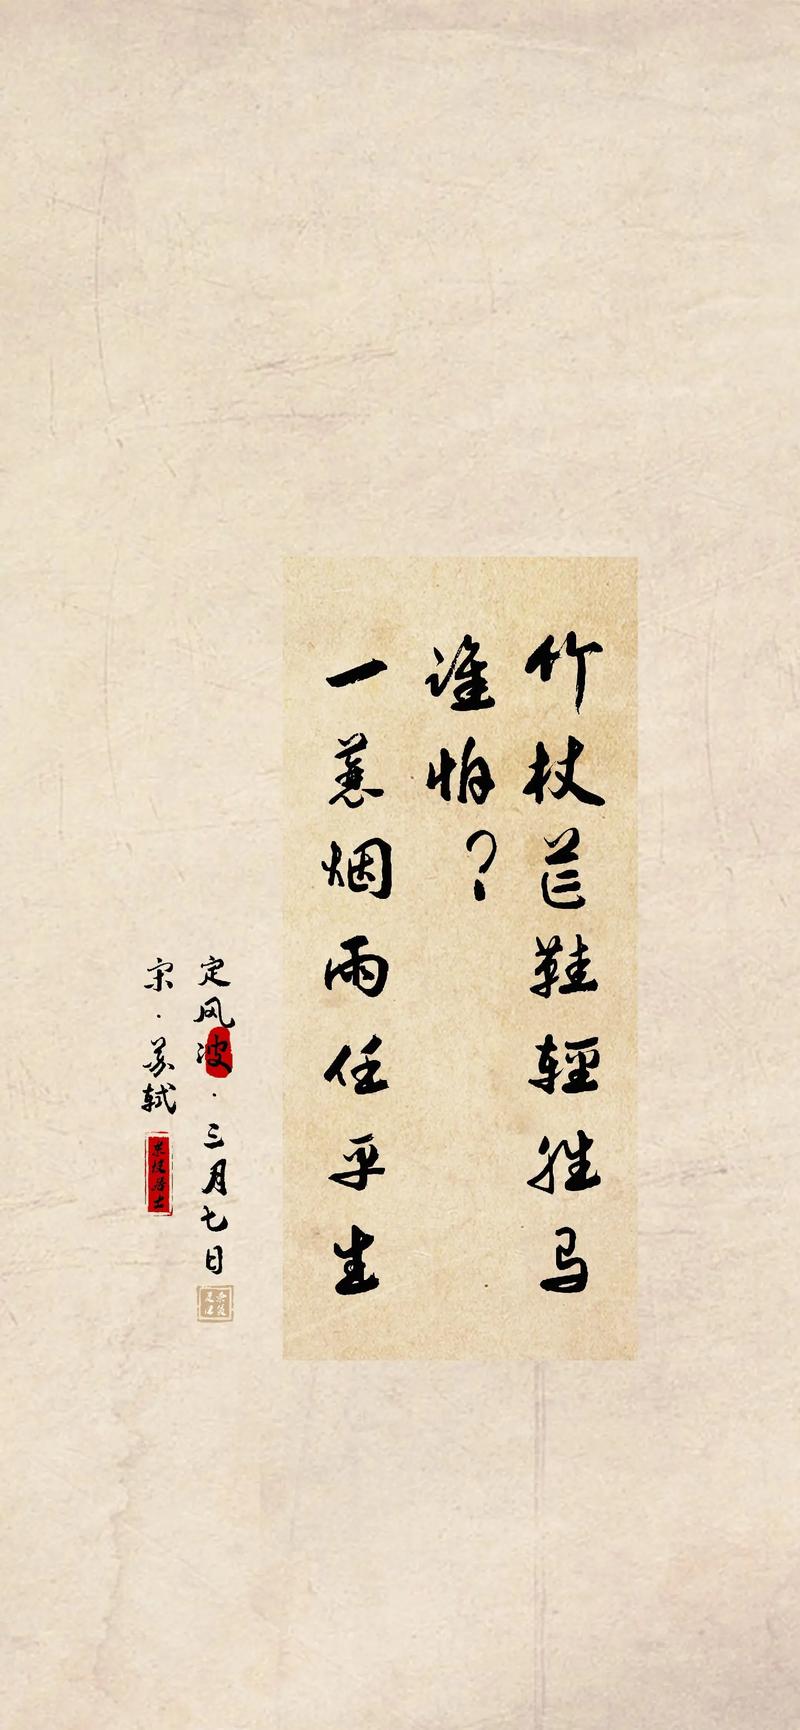 竹杖芒鞋輕胜马
谁怕?
一蓑烟雨任平生
定风波·三月七日
宋·苏轼
东坡居士